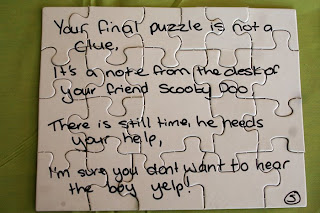 Your final puzzle is not a
clue,
It's a note from the desk of
your friend Scooby Doo!
There is still time, he needs
your help,
I'm sure you dont want to hear
the boy yelp!
5